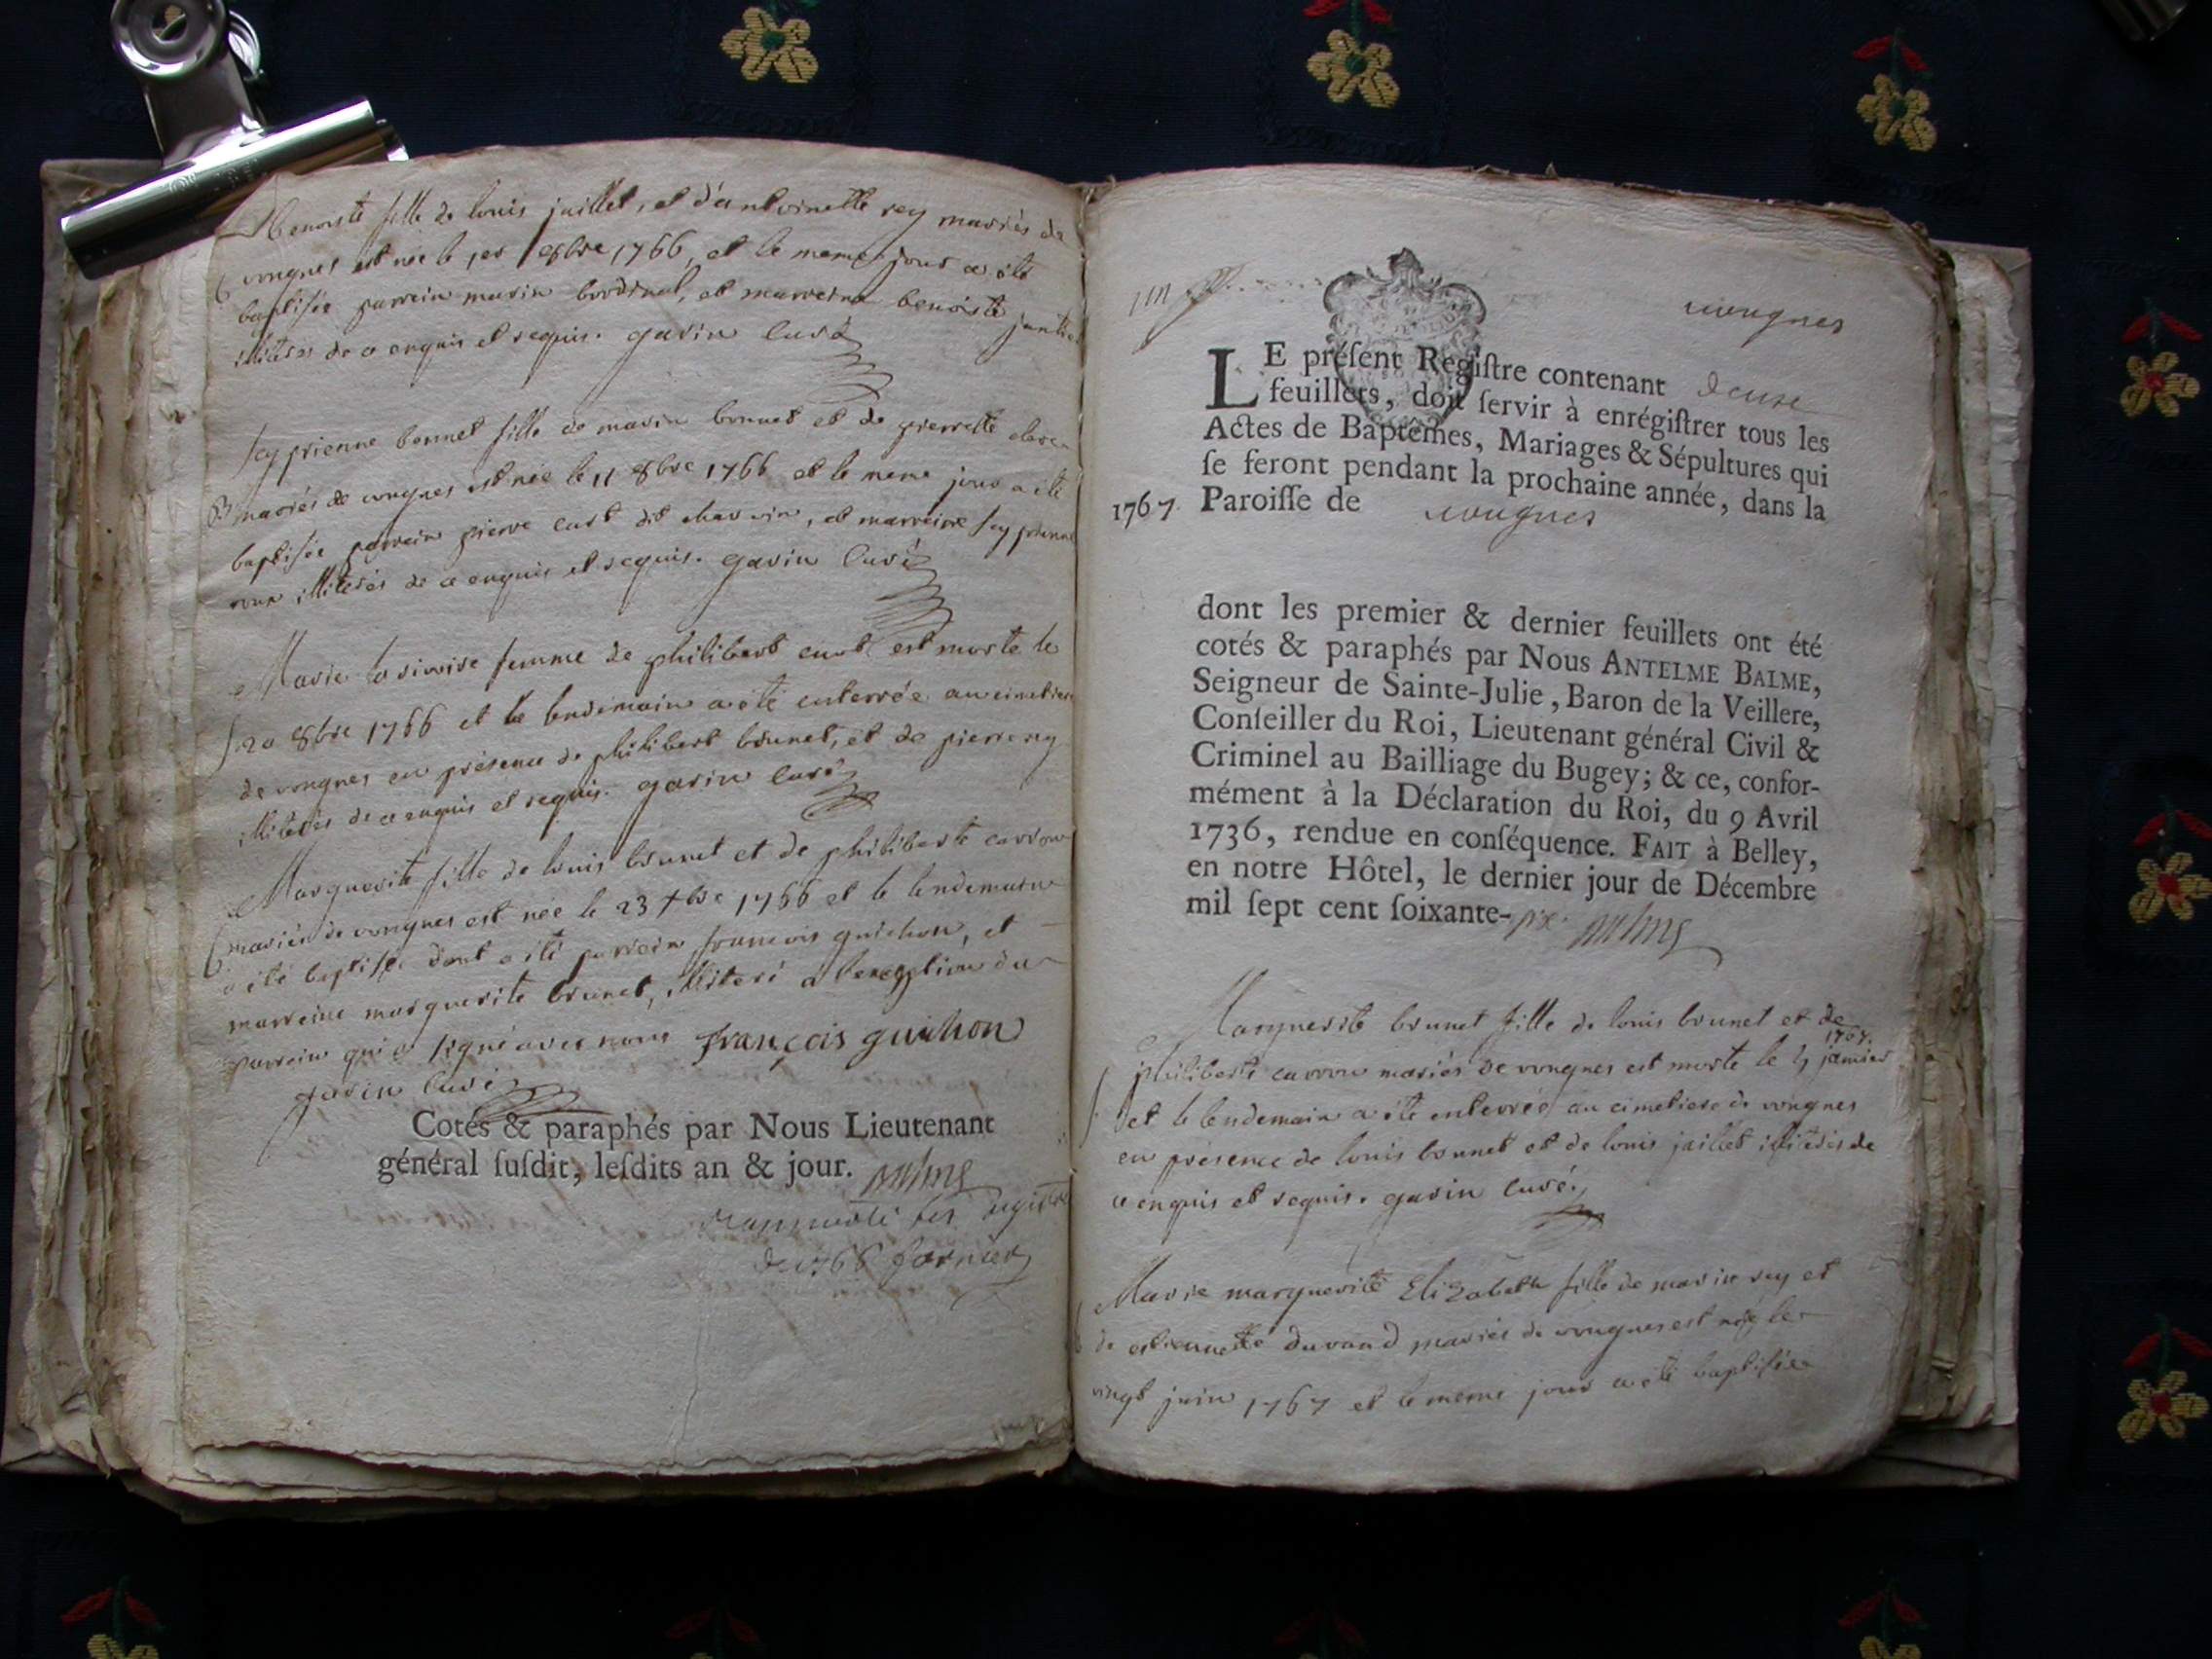 Benoiste fille de louis juillet, et d'antoinette rey mariés de
vongnes est née le 1er 8bre 1766, et le meme jour a été
baptisée parrein marin et marreine benoiste
illiterés de ce enquis et requis. gavin Curé
Seyprienne bonnet fille de marin bonnet et de pierrette
mariés de vongnes est née le 11 8bre 1766 et le meme jour a été
baptisée parrein pierre curt dit et marreine seyprienne
illiterés de ce enquis et requis. gavin Curé
Marie femme de philibert curt est morte le
20 8bre 1766 et le lendemain a été enterrée au cimetiere
de vongnes en présence de philibert brunet, et de pierre rey
illiterés de ce enquis et requis. gavin Curé
Marguerite fille de louis brunet et de philiberte carron
mariés de vongnes est née le 23 xbre 1766 et le lendemain
a été baptisée dont a été parrein francois guichon, et
marreine marguerite brunet, illiteré a l'exception du
parrein qui a signé avec nous françois guichon
gavin Curé
Cotés & paraphés par Nous Lieutenant
général ſuſdit, leſdits an & jour.
de 1766
vongnes
LE préſent Regiſtre contenant deux
feuillets, doit ſervir à enrégiſtrer tous les
Actes de Baptêmes, Mariages & Sépultures qui
ſe feront pendant la prochaine année, dans la
1767 Paroiſſe de vongnes
dont les premier & dernier feuillets ont été
cotés & paraphés par Nous ANTELME BALME,
Seigneur de Sainte-Julie, Baron de la Veillere,
Conſeiller du Roi, Lieutenant général Civil &
Criminel au Bailliage du Bugey; & ce, confor-
mément à la Déclaration du Roi, du 9 Avril
1736, rendue en conſéquence. FAIT à Belley,
en notre Hôtel, le dernier jour de Décembre
mil ſept cent ſoixante-six
Marguerite brunet fille de louis brunet et de
1767.
philiberte carron mariés de vongnes est morte le 4 janvier
et le lendemain a été enterrée au cimetiere de vongnes
en présence de louis bonnet et de louis juillet illiterés de
ce enquis et requis. gavin Curé.
Marie marguerite Elizabeth fille de marin rey et
de estiennette durand mariés de vongnes est née le
vingt juin 1767 et le meme jour a été baptisée